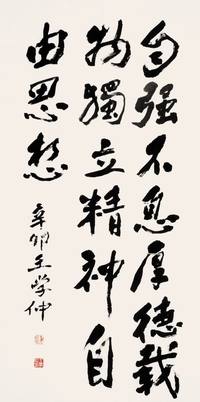 自强不息厚德载
物獨立精神自
由思想
辛卯王学仲